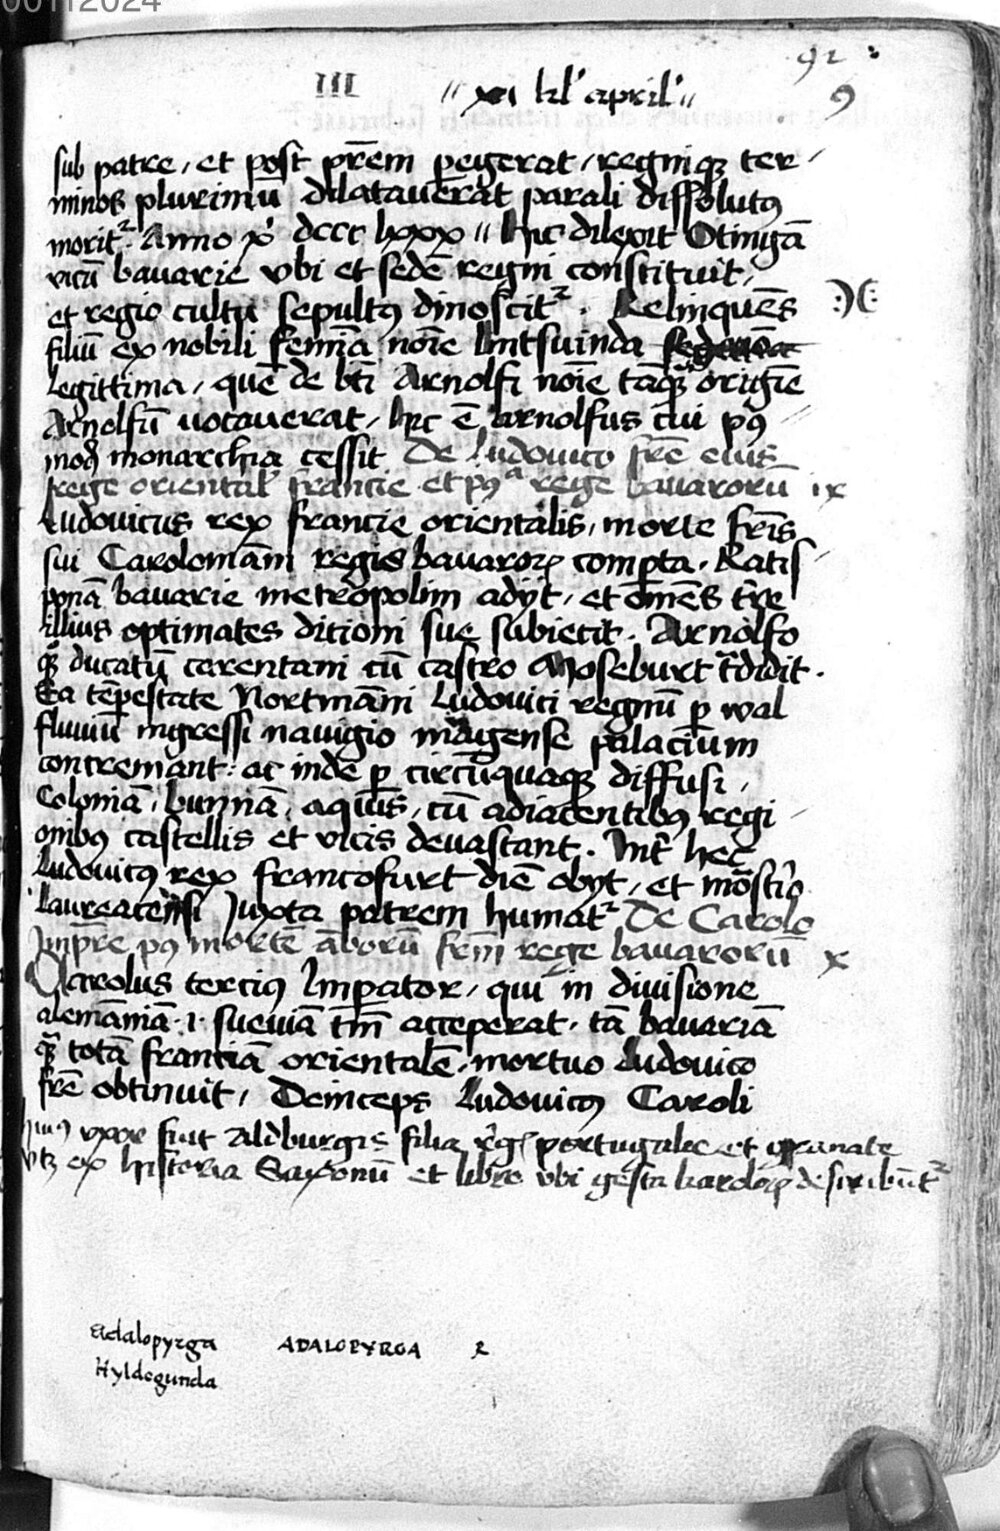 00112024
92
9
III
xii kl' april'
sub patre, et post prēm pegerat, regniq; ter
minos plurimū dilatauerat parali dissolutꝰ
morit᷑. Anno xͥ dccc lxxx hic dilexit Otingā
vicū bauarie vbi et sedē regni constituit,
et regio cultu sepultꝰ dinoscit᷑. Relinquēs
filiū ex nobili femīa noīe lintsuinda
legittima, quē de btī Arnolfi noīe tāq origīe
Arnolfū uocauerat, hic ē arnolfus cui pꝰ
modū monarchia cessit De Ludouico frē eius
rege oriental' francie et pꝰᵃ rege bauarorū ix
Ludouicus rex francie orientalis, morte frīs
sui Carolomāni regis bauaroꝝ comperta. Ratis
ponā bauarie metropolim adyt, et omēs terre
illius optimates ditioni sue subiecit. Arnolfo
q; ducatū carentani cū castro Moseburt t̄didit.
Ea tēpestate Nortmāni Ludouici regnū p wal
fluuiū ingressi nauigio magense palacium
concremant: ac inde p circūquaq; diffusi,
Coloniā, bunnā, aquis, cū adiacentibꝰ regi
onibꝰ castellis et vicis deuastant. Int̄ hec
Ludouicꝰ rex francofurt diē obyt, et mōstio
Laureacēsi Juxta patrem humat᷑ De Carolo
Jmpr̄e pꝰ mortē āborū frm̄ rege bauarorū x
Carolus terciꝰ Imperator, qui in diuisione
alemāniā .i. sueuiā tm̄ acceperat, tā bauariā
q; totā franciā orientalē, mortuo Ludouico
frē obtinuit, Deinceps Ludouicꝰ Caroli
huiꝰ vxor fuit Aldburgis filia rͤg portugalie et granate
vt ex historia Saxonū et libro vbi gesta karoloꝝ describūt᷑
Adalopyrga ADALOPYRGA R
Hyldegunda